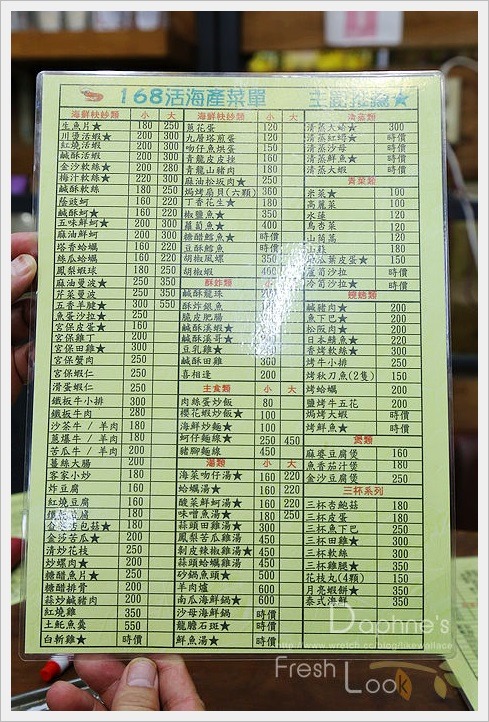 168活海產菜單 主廚推薦★
海鮮快炒類 小 大
生魚片★ 180 250
川燙活蝦★ 200 300
紅燒活蝦 200 300
鹹酥活蝦 200 300
金沙軟絲★ 200 280
梅汁軟絲★ 220 300
鹹酥軟絲 180 250
蔭豉蚵 160 220
鹹酥蚵★ 160 220
五味鮮蚵★ 200 300
麻油鮮蚵 200 300
塔香蛤蠣 160 220
絲瓜蛤蠣 160 220
鳳梨蝦球 180 250
麻油曼波★ 250 350
芹菜曼波 250 350
五香羊腱★ 300 550
魚蛋沙拉★ 250
宮保皮蛋★ 160
宮保雞丁 200
宮保田雞★ 300
宮保蟹肉 250
宮保蝦仁 250
滑蛋蝦仁 250
鐵板牛小排 300
鐵板牛肉 280
沙茶牛 / 羊肉 180
蔥爆牛 / 羊肉 180
苦瓜牛 / 羊肉 200
薑絲大腸 200
客家小炒 180
炸豆腐 160
紅燒豆腐 160
180
杏包菇★ 180
金莎苦瓜★ 200
清炒花枝 250
炒螺肉★ 250
糖醋魚片★ 250
糖醋排骨 200
蒜炒鹹豬肉 200
紅燒雞 350
土魠魚羹 550
白斬雞★ 時價
海鮮快炒類 小 大
蔥花蛋 120
九層塔煎蛋 120
吻仔魚烘蛋 150
青龍皮皮挫 160
青龍山豬肉 180
麻油松坂肉★ 250
焗烤扇貝(六顆) 360
丁香花生★ 180
椒鹽魚★ 350
蘿蔔魚★ 400
糖醋鱈魚★ 時價
豆酥鱈魚 時價
胡椒風螺 350
胡椒蝦 400
酥炸類 小 大
鹹酥龍珠
酥炸銀魚
脆皮肥腸
鹹酥溪蝦★
鹹酥溪哥★
豆乳雞★ 250
鹹酥田雞 300
喜相逢 200
主食類 小 大
肉絲蛋炒飯 80
櫻花蝦炒飯★ 100
海鮮炒麵★ 100
蚵仔麵線★ 250 450
豬腳麵線 450
湯類 小 大
海菜吻仔湯★ 160 220
蛤蠣湯★ 160 220
酸菜鮮蚵湯★ 160 220
味噌魚湯★ 180 250
蒜頭田雞湯★ 300
鳳梨苦瓜雞湯 450
剥皮辣椒雞湯★ 450
蒜頭蛤蠣雞湯 450
砂鍋魚頭★ 500
羊肉爐 600
南瓜海鮮鍋★ 600
沙母海鮮鍋 時價
龍膽石斑★ 時價
鮮魚湯★ 時價
清蒸類
清蒸大蛤★ 300
清蒸紅蟳★ 時價
清蒸沙母 時價
清蒸鮮魚★ 時價
清蒸大蝦 時價
青菜類
米菜★ 100
高麗菜 100
水蓮 120
烏杏菜 120
山茼蒿 120
山蘇 120
地瓜葉皮蛋★ 150
蘆筍沙拉 時價
冷筍沙拉★ 時價
燒烤類
鹹豬肉★ 200
魚下巴★ 200
松阪肉★ 200
日本鯖魚★ 220
香烤軟絲★ 300
烤牛小排 250
烤秋刀魚(2隻) 150
烤蛤蠣 200
鹽烤牛五花 200
焗烤大蝦 時價
烤鮮魚★ 時價
煲類
麻婆豆腐煲 160
魚香茄汁煲 180
金沙豆腐煲 250
三杯系列
三杯杏鮑菇 180
三杯皮蛋 180
三杯魚下巴 250
三杯田雞★ 300
三杯軟絲 300
三杯雞腿★ 350
花枝丸(4顆) 150
月亮蝦餅★ 350
泰式海鮮 350
Daphne's
http://www.wretch.cc/blog/likewallace
Fresh Look